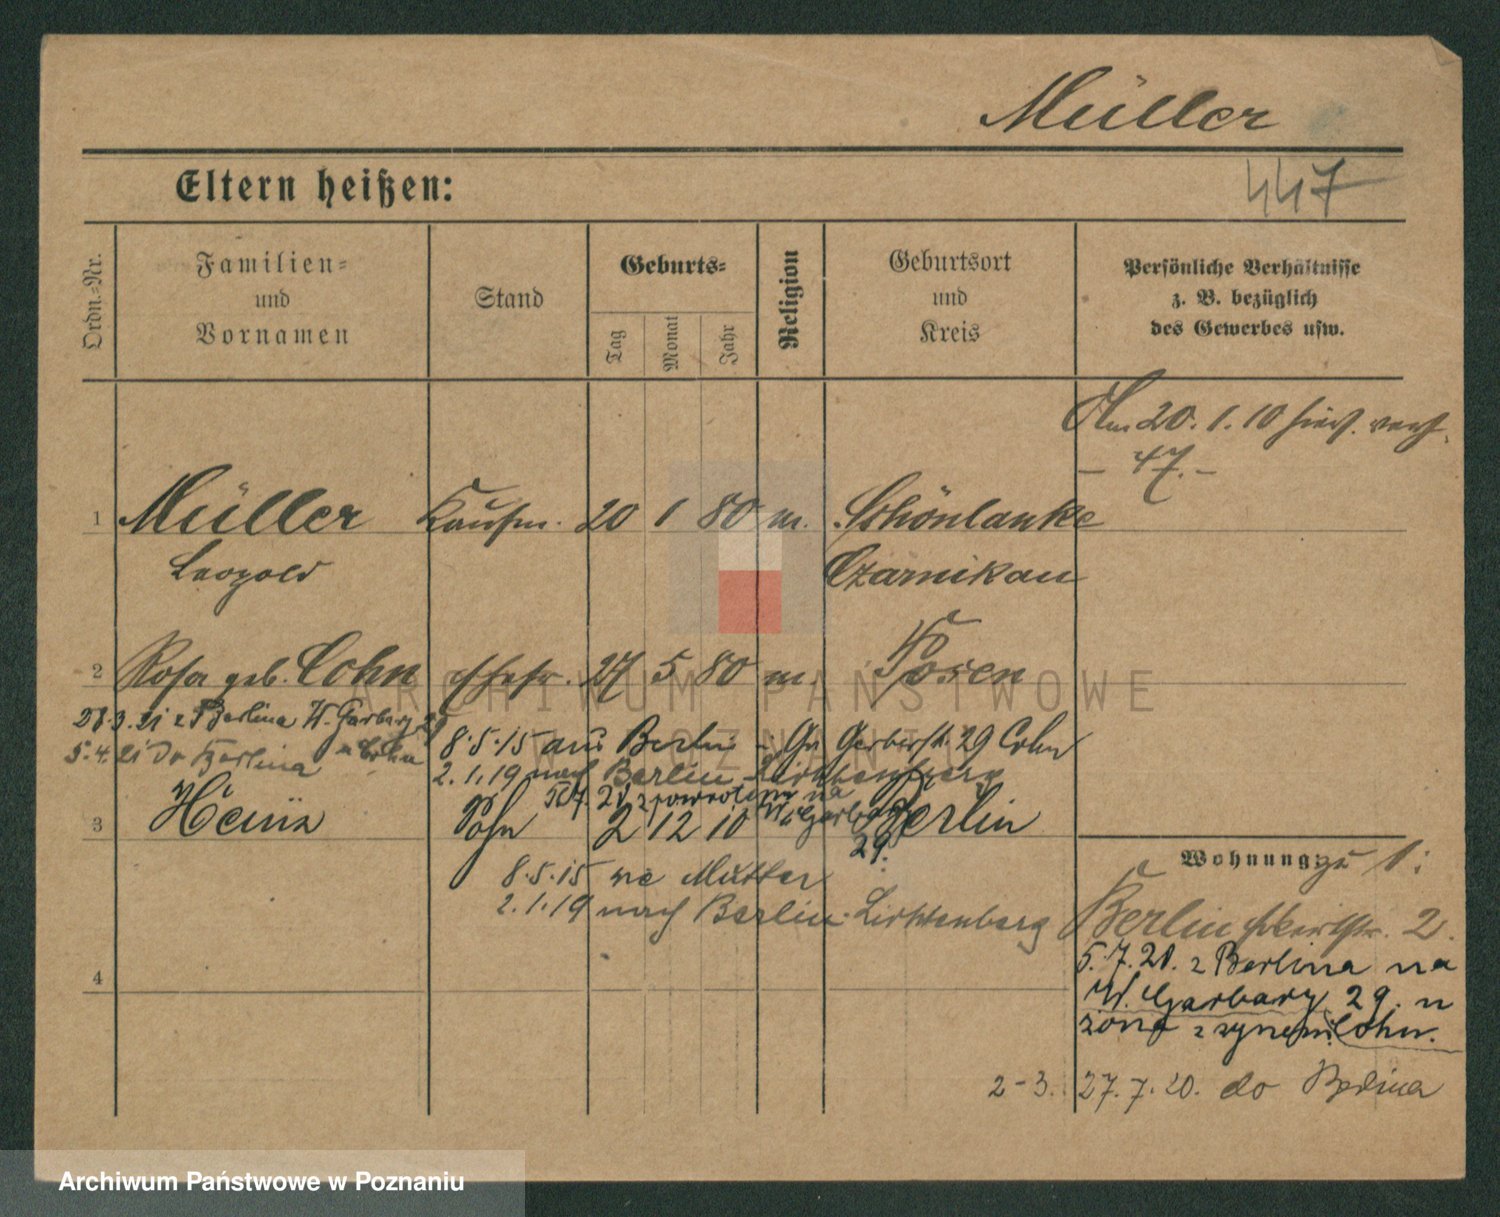 Müller
447
Eltern heißen:
Ordn.-Nr.
Familien- und Vornamen
Stand
Geburts-
Tag Monat Jahr
Religion
Geburtsort und Kreis
Persönliche Verhältnisse
z. B. bezüglich
des Gewerbes usw.
Am 20. 1. 10 hier
- 47. -
1 Müller Kaufm. 20 1 80 m. Schönlanke
Leopold Czarnikau
2 Rosa geb. Cohn Ehefr. 27 5 80 m. Posen
28.3.21 z Berlina W. Garbary 29
5.4.21 Do Berlina Cohn
8.5.15 aus Berlin Gr. Gerberstr. 29 Cohn
2.1.19 nach Berlin-Lichtenberg
z powrotem na
W. Garbary
29.
3 Heinz Sohn 2 12 10 Berlin
8.5.15 Mutter
2.1.19 nach Berlin-Lichtenberg
4
Wohnung: zu 1:
Berlin 2.
5.7.20. z Berlina na
W. Garbary 29. u
żoną z synem Cohn.
2-3. 27.7.20. do Berlina
ARCHIWUM PAŃSTWOWE
W POZNANIU
Archiwum Państwowe w Poznaniu